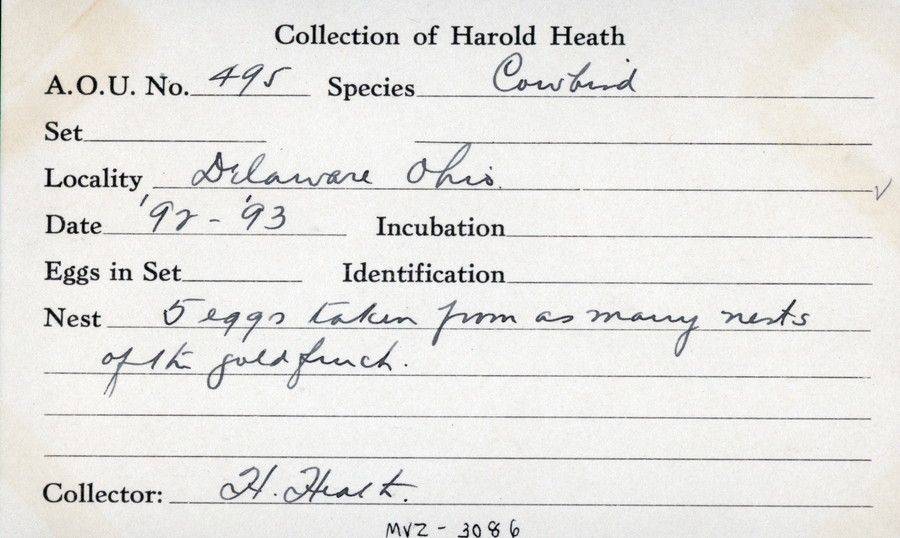 Collection of Harold Heath
A.O.U. No. 495 Species Cowbird
Set
Locality Delaware Ohio.
Date '92-'93 Incubation
Eggs in Set Identification
Nest 5 eggs taken from as many nests
of the goldfinch.
Collector: H. Heath.
MVZ - 3086